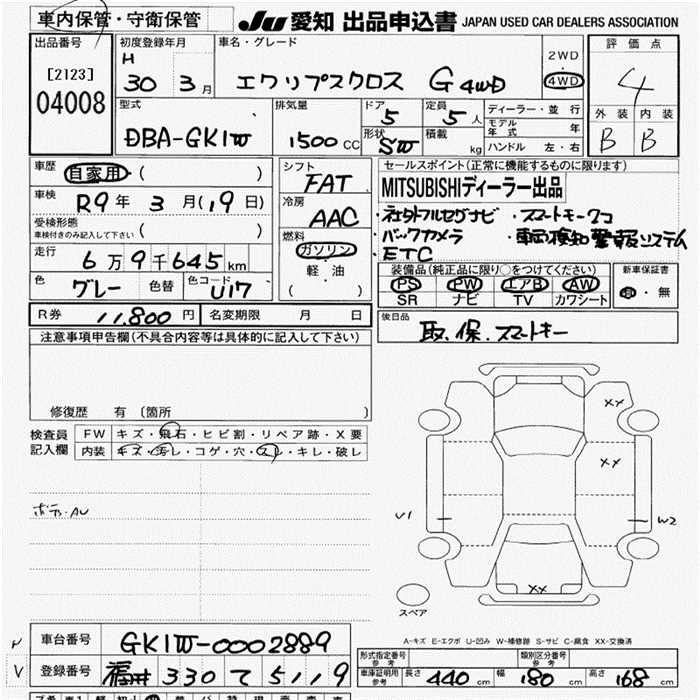 車内保管・守衛保管
JU 愛知 出品申込書 JAPAN USED CAR DEALERS ASSOCIATION
出品番号
[2123]
04008
初度登録年月
H
30 3月
車名・グレード
エクリプスクロス G 4WD
2WD
4WD
評価点
4
外装 内装
B B
型式
DBA-GK1W
排気量
1500 CC
ドア
5
形状
SW
定員
5人
積載
kg
ディーラー・並行
モデル年式 年
ハンドル 左・右
車歴
自家用 ( )
車検
R9年 3月(19日)
受検形態
車検付きのみ記入して下さい ( )
走行
6万9千645km
色
グレー 色替
色コード
U17
シフト
FAT
冷房
AAC
燃料
ガソリン
軽・油
( )
セールスポイント(正常に機能するものに限ります)
MITSUBISHIディーラー出品
・社外フルセグナビ ・スマートキー2コ
・バックカメラ ・車両検知警報システム
・ETC
装備品(純正品に限り○をつけてください)
PS PW エアB AW
SR ナビ TV カワシート
新車保証書
有・無
R券 11,800円
名変期限 月 日
後日品
取、保、スマートキー
注意事項申告欄(不具合内容等は具体的に記入して下さい)
修復歴 有 〔箇所 〕
検査員
記入欄
FW キズ・飛石・ヒビ割・リペア跡・X要
内装 キズ・汚レ・コゲ・穴・スレ・キレ・破レ
ボデ、AU
XX
XX
U1
W2
XX
スペア
A-キズ E-エクボ U-凹み W-補修跡 S-サビ C-腐食 XX-交換済
車台番号
GK1W-0002889
登録番号
福井 330 て 5119
形式指定番号
参考
類別区分番号
参考
車庫証明用
参考
長さ 440 cm
幅 180 cm
高さ 168 cm